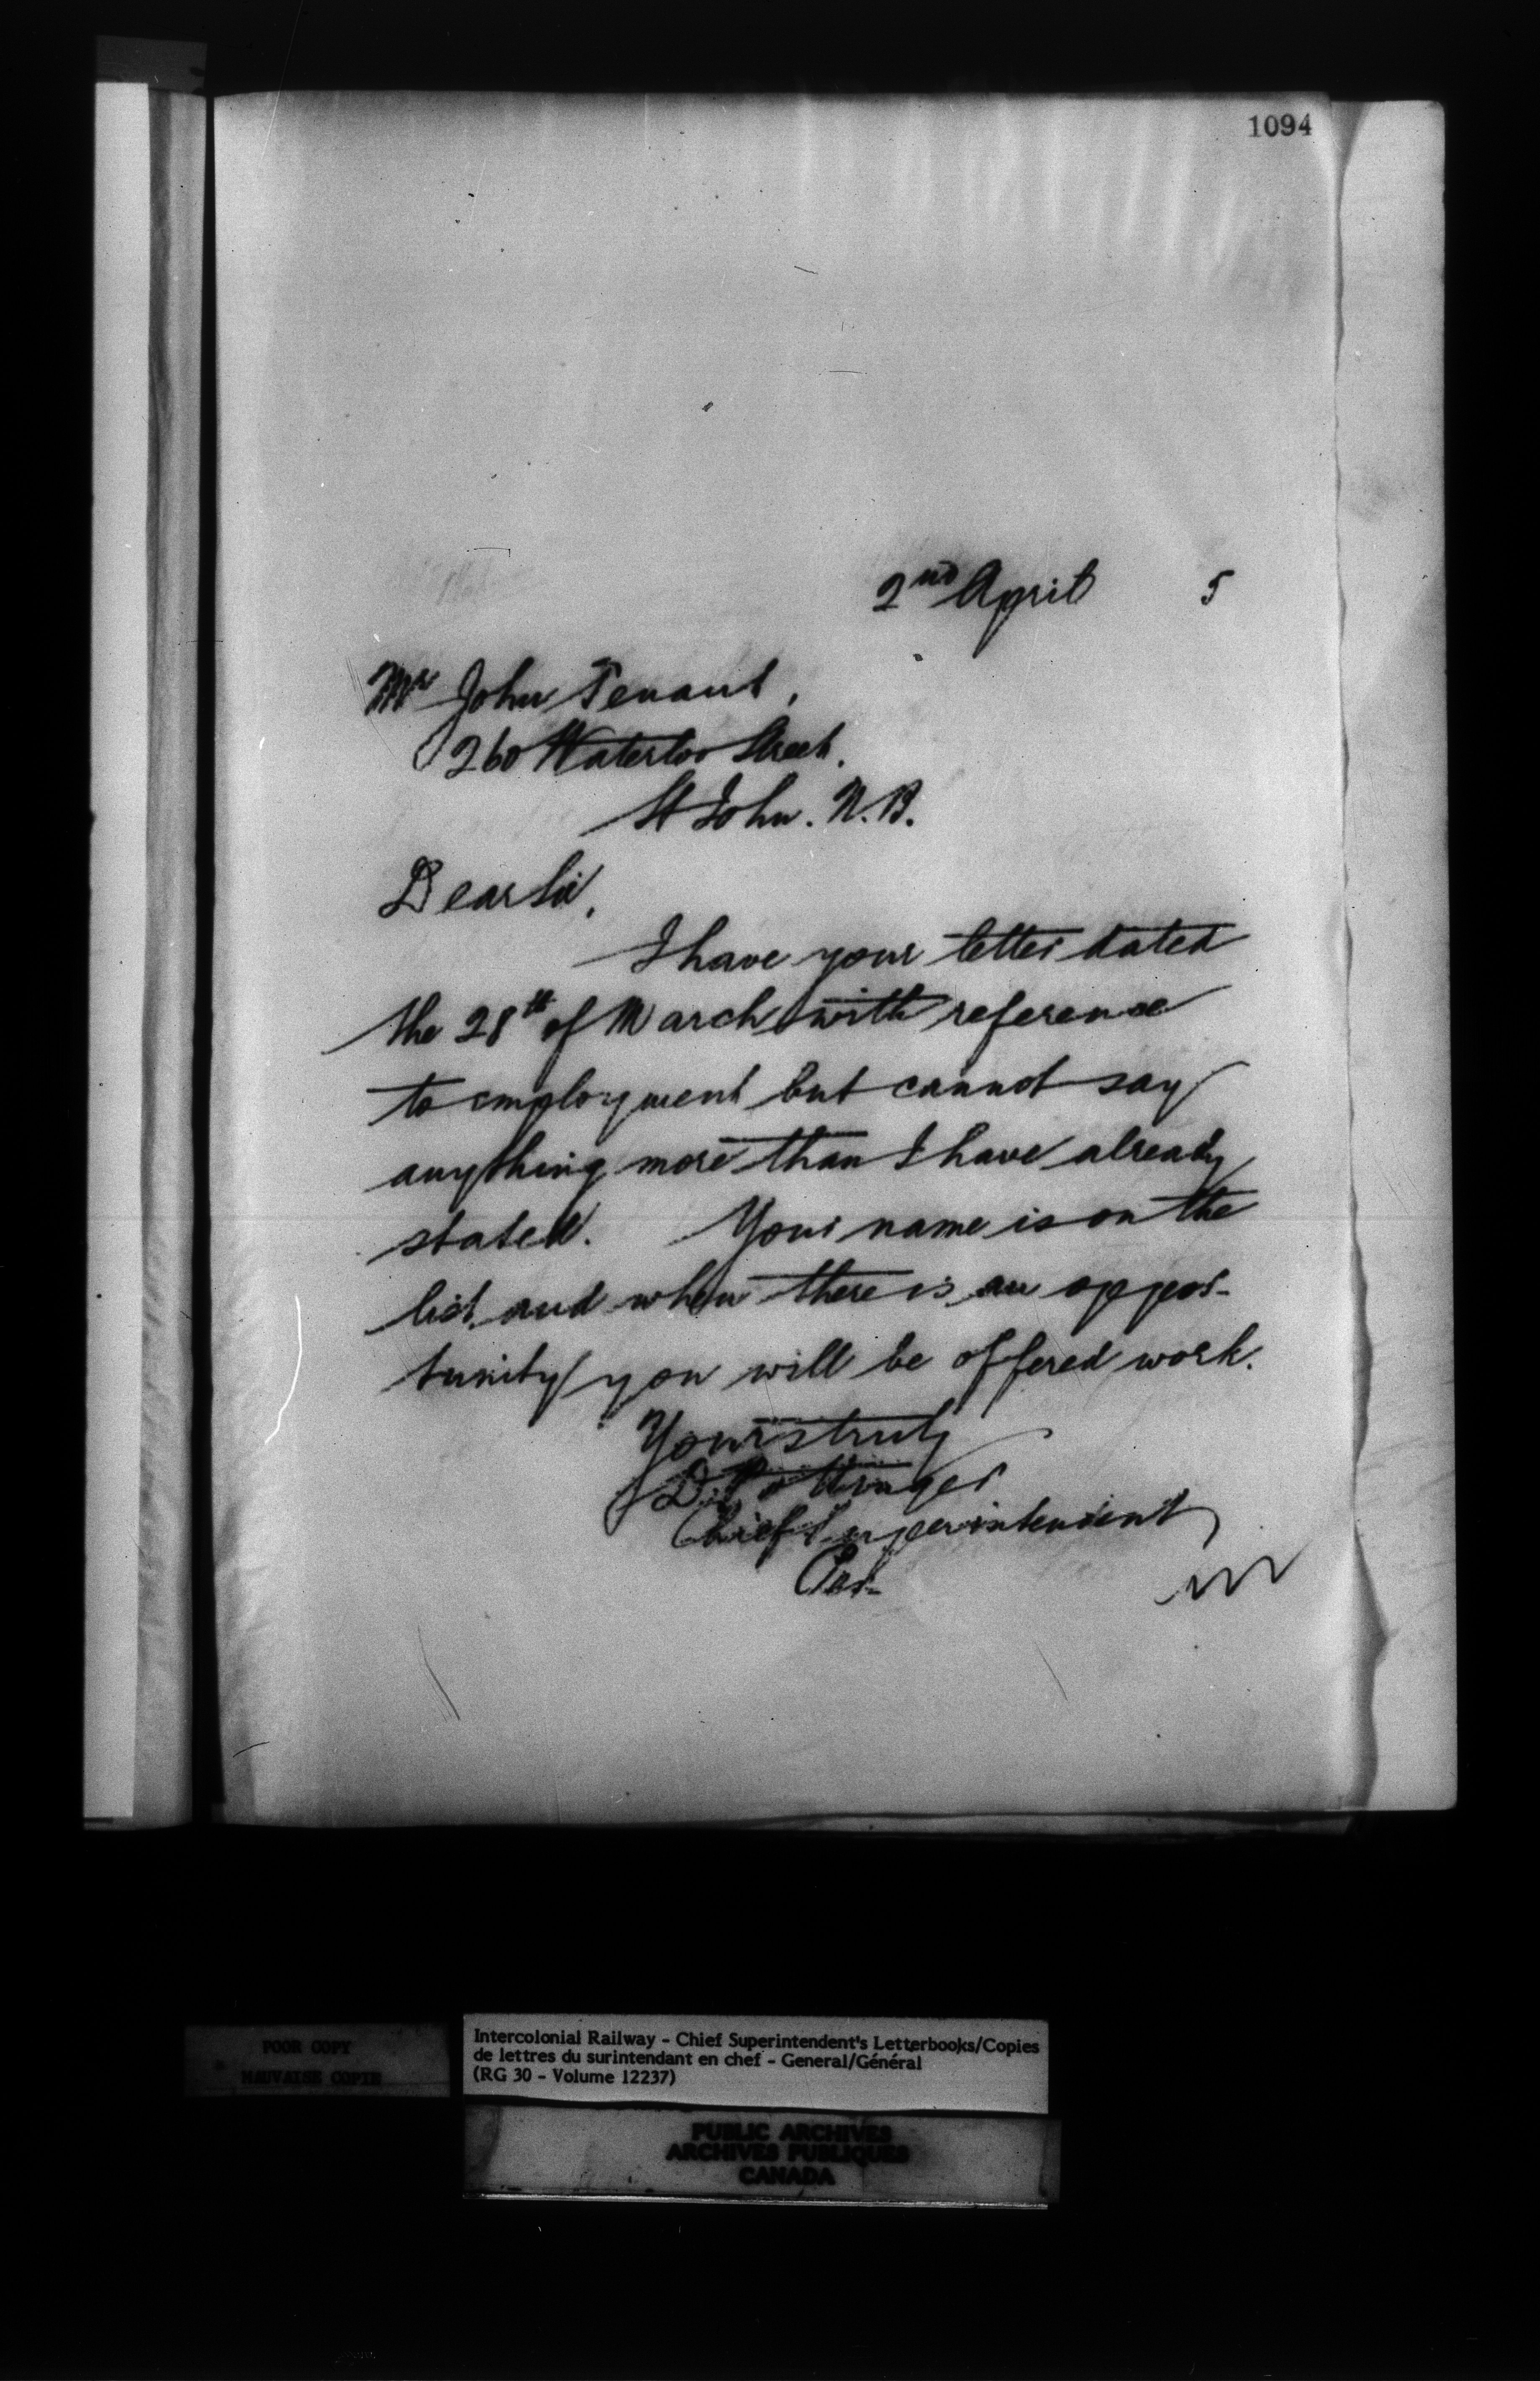 1094
2nd April 5
Mr John Tenant,
260 Waterloo Street.
St John. N.B.
Dear Sir,
I have your letter dated
the 28th of March with reference
to employment but cannot say
anything more than I have already
stated. Your name is on the
list and when there is an oppor-
tunity you will be offered work.
Yours truly
D. Pottinger
Chief Superintendent
POOR COPY
MAUVAISE COPIE
Intercolonial Railway - Chief Superintendent's Letterbooks/Copies
de lettres du surintendant en chef - General/Général
(RG 30 - Volume 12237)
PUBLIC ARCHIVES
ARCHIVES PUBLIQUES
CANADA